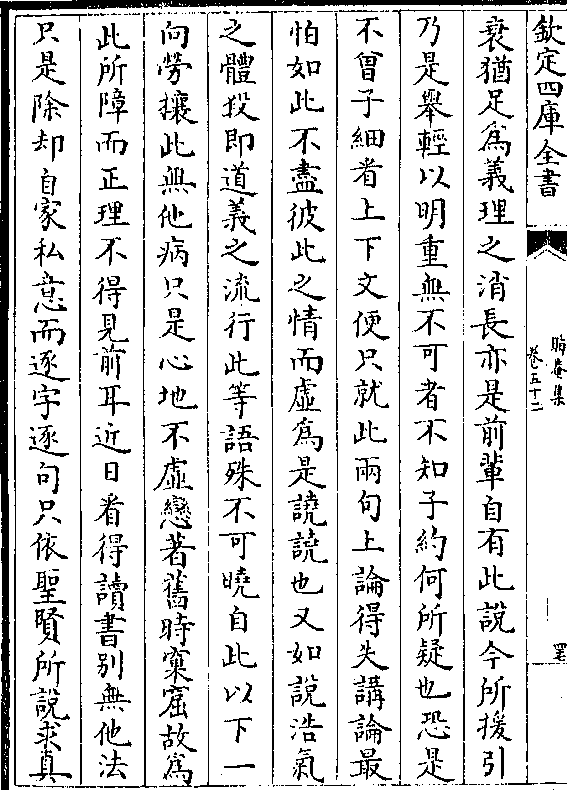 欽定四庫全書
晦菴集
卷五十二
衰猶足爲義理之消長亦是前輩自有此説今所援引
乃是舉輕以明重無不可者不知子約何所疑也恐是
不曾子細看上下文便只就此兩句上論得失講論最
怕如此不盡彼此之情而虛爲是譊譊也又如説浩氣
之體段即道義之流行此等語殊不可曉自此以下一
向勞攘此無他病只是心地不虛戀著舊時窠窟故爲
此所障而正理不得見前耳近日看得讀書别無他法
只是除却自家私意而逐字逐句只依聖賢所説求真